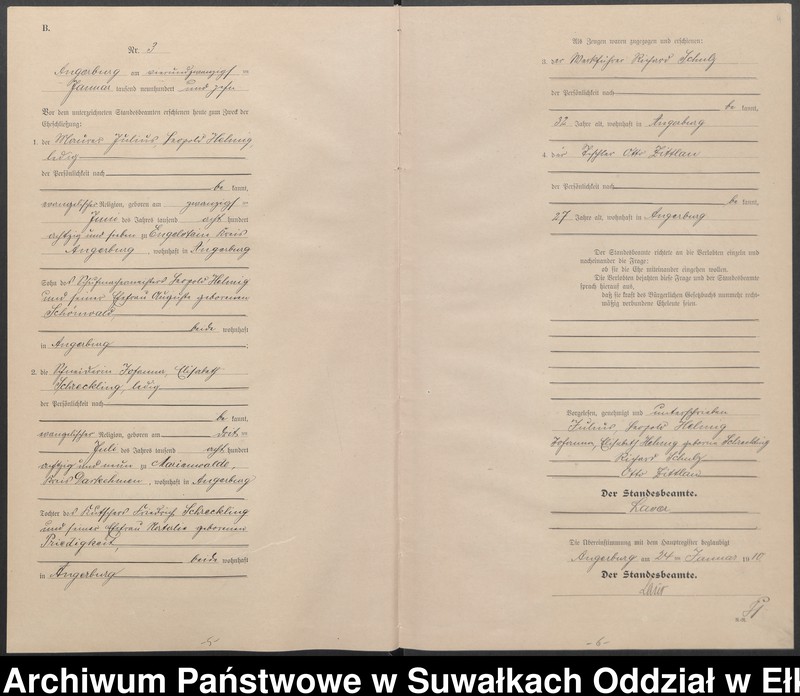 B.
Nr. 3
Angerburg am vierundzwanzigsten
Januar tausend neunhundert und zehn
Vor dem unterzeichneten Standesbeamten erschienen heute zum Zweck der
Eheschließung:
1. der Maurer Julius, Leopold Helmig,
ledig
der Persönlichkeit nach
be kannt,
evangelischer Religion, geboren am zwanzigsten
Juni des Jahres tausend acht hundert
achtzig und sieben zu Engelstein, Kreis
Angerburg, wohnhaft in Angerburg
Sohn des Leopold Helmig
und seiner Ehefrau Auguste geborenen
Schönwald,
beide wohnhaft
in Angerburg;
2. die Schneiderin Johanna, Elisabeth
Schreckling, ledig
der Persönlichkeit nach
be kannt,
evangelischer Religion, geboren am
Juli des Jahres tausend acht hundert
achtzig und neun zu Marienwalde,
Kreis Darkehmen, wohnhaft in Angerburg
Tochter des Kutschers Friedrich Schreckling
und seiner Ehefrau Natalie geborenen
Priedigkeit,
beide wohnhaft
in Angerburg
-5-
Als Zeugen waren zugezogen und erschienen:
3. der Werkführer Richard Schulz
der Persönlichkeit nach
be kannt,
32 Jahre alt, wohnhaft in Angerburg
4. der Tischler Otto Zittlau
der Persönlichkeit nach
be kannt,
27 Jahre alt, wohnhaft in Angerburg
Der Standesbeamte richtete an die Verlobten einzeln und
nacheinander die Frage:
ob sie die Ehe miteinander eingehen wollen.
Die Verlobten bejahten diese Frage und der Standesbeamte
sprach hierauf aus,
daß sie kraft des Bürgerlichen Gesetzbuchs nunmehr recht-
mäßig verbundene Eheleute seien.
Vorgelesen, genehmigt und unterschrieben
Julius, Leopold Helmig
Johanna, Elisabeth Helmig geborene Schreckling
Richard Schulz
Otto Zittlau
Der Standesbeamte.
Die Übereinstimmung mit dem Hauptregister beglaubigt
Angerburg am 24ten Januar 1910
Der Standesbeamte.
-6-
Archiwum Państwowe w Suwałkach Oddział w Eł